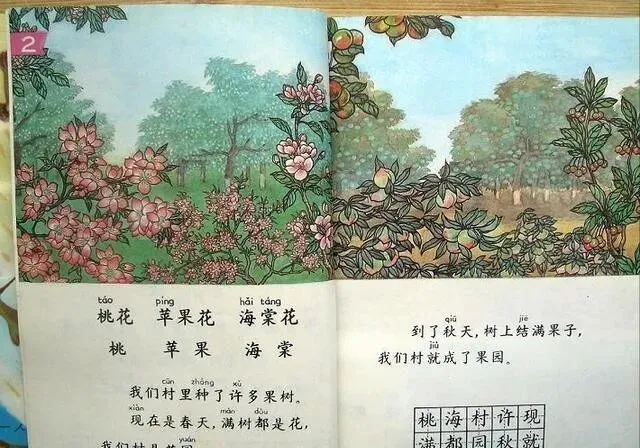 2
táo píng hǎi táng
桃花 苹果花 海棠花
桃 苹果 海棠
cūn zhòng xǔ
我们村里种了许多果树。
xiàn mǎn dōu
现在是春天,满树都是花,
yuán
我们村是花园。
qiū jiē
到了秋天,树上结满果子,
jiù
我们村就成了果园。
桃海村许现
满都园秋就